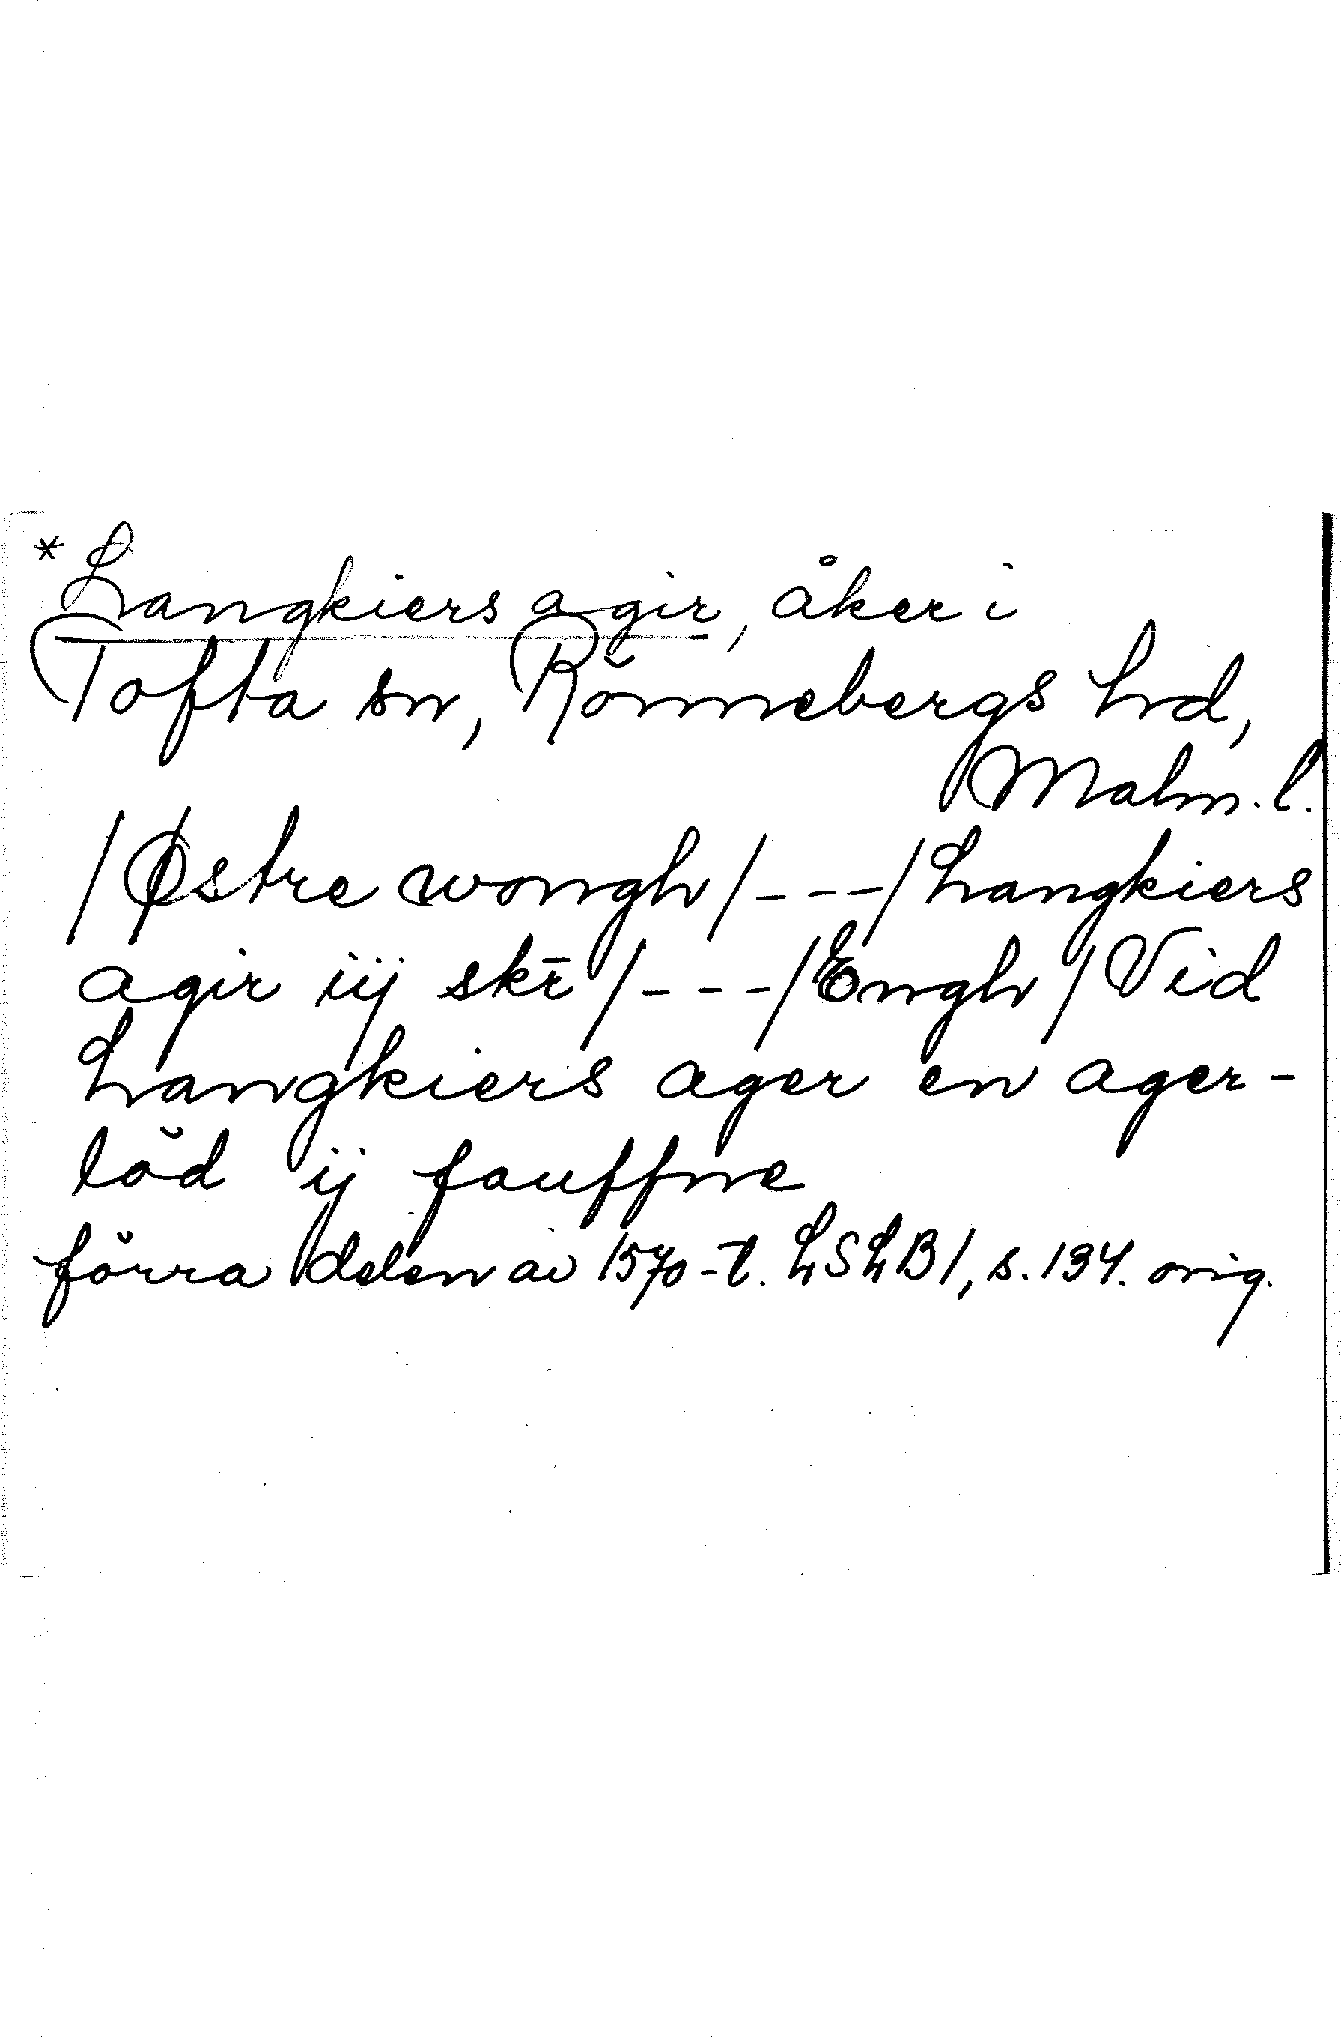 *Langkiers agir, åker i
Tofta sn, Rönnebergs hd,
Malm. l.
/Østre wongh/---/Langkiers
agir iij skr̄/---/Engh/Vid
Langkiers ager en ager-
löd ij fauffne
förra delen av 1570-t. LSLB1, s. 134. orig.